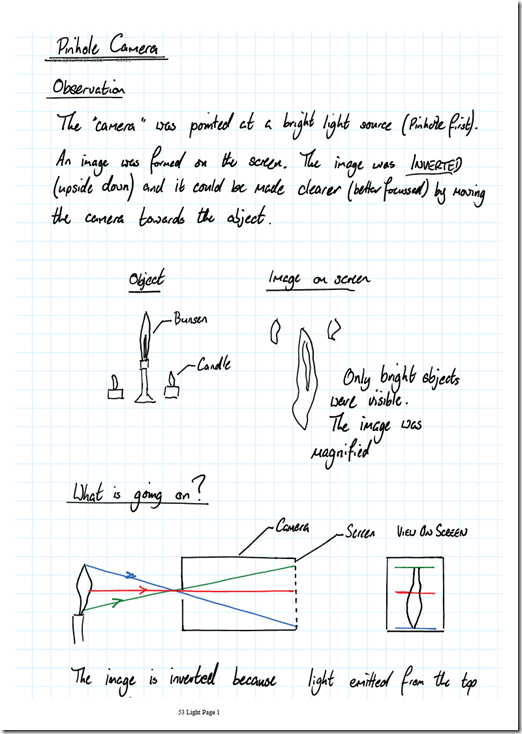 Pinhole Camera
Observation
The "camera" was pointed at a bright light source (Pinhole first).
An image was formed on the screen. The image was INVERTED
(upside down) and it could be made clearer (better focussed) by moving
the camera towards the object.
Object
Image on screen
Bunsen
Candle
Only bright objects
were visible.
The image was
magnified
What is going on?
Camera
Screen
VIEW ON SCREEN
The image is inverted because light emitted from the top
53 Light Page 1